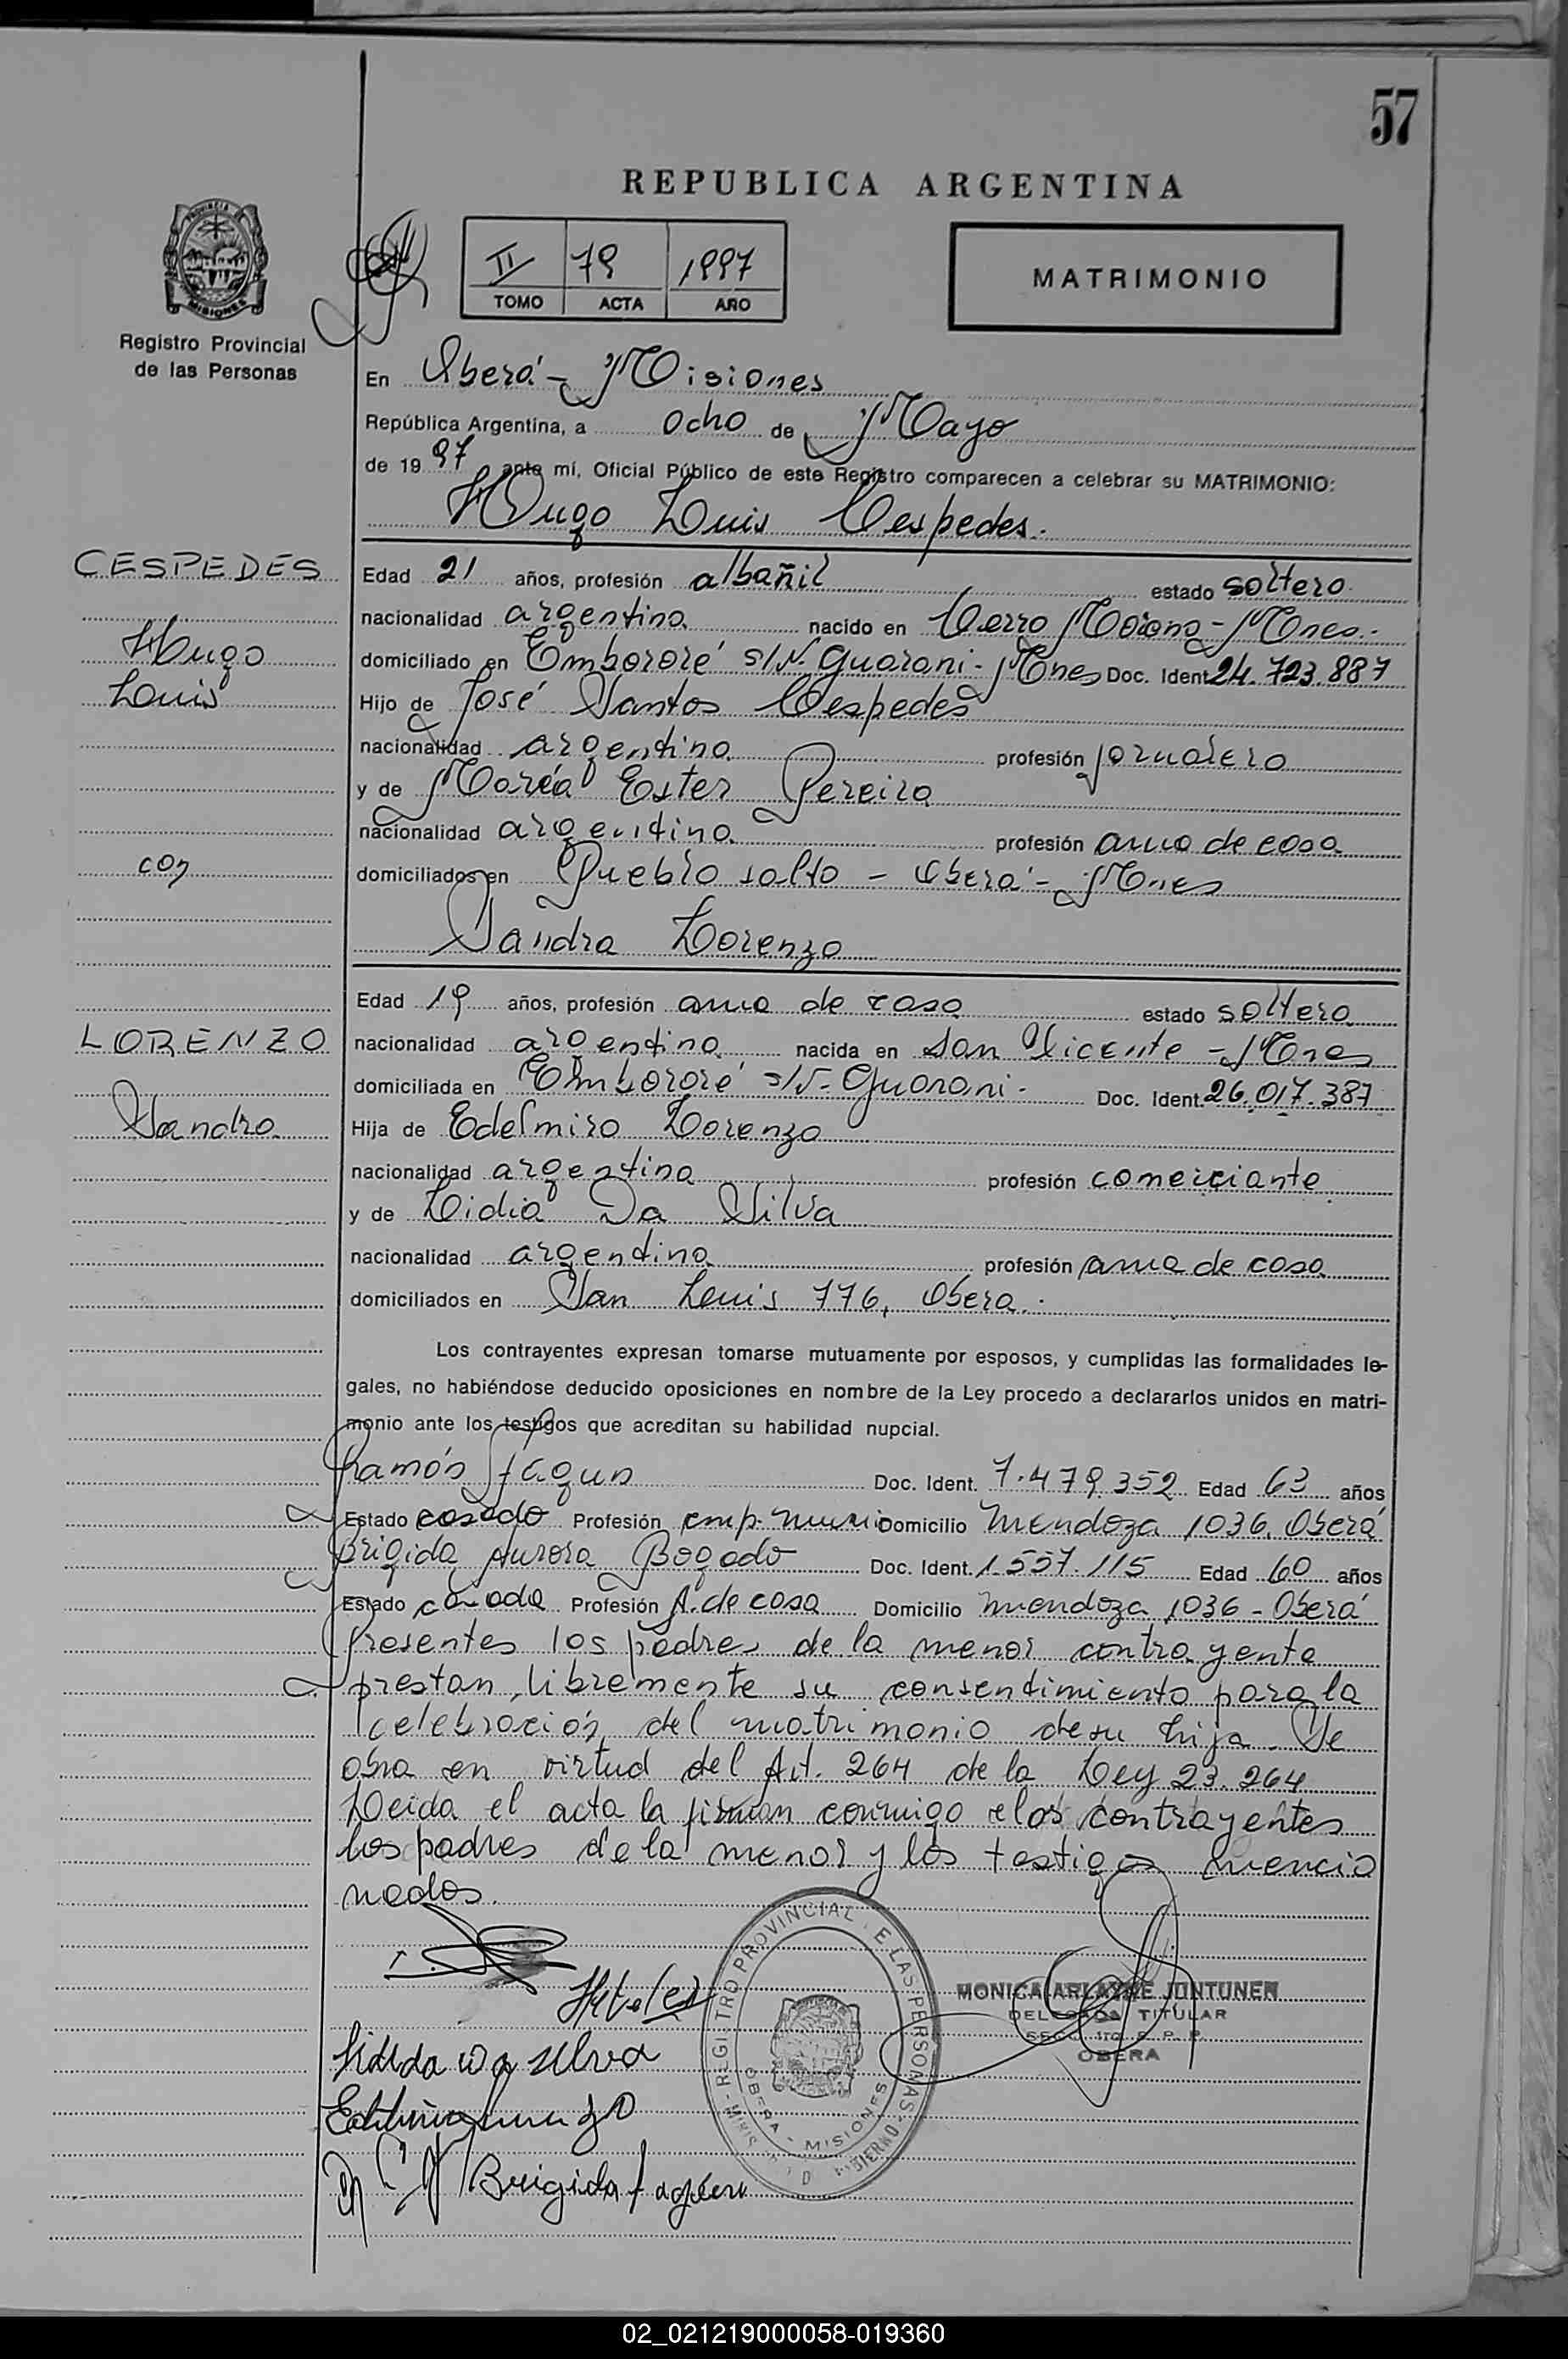 57
REPUBLICA ARGENTINA
PROVINCIA DE
MISIONES
Registro Provincial
de las Personas
II 79 1997
TOMO ACTA AÑO
MATRIMONIO
En Oberá - Misiones
República Argentina, a ocho de Mayo
de 19 97 ante mí, Oficial Público de este Registro comparecen a celebrar su MATRIMONIO:
Hugo Luis Cespedes.
CESPEDES
Hugo
Luis
con
LORENZO
Sandra
Edad 21 años, profesión albañil estado soltero
nacionalidad argentina nacido en Cerro Moreno - Mnes.-
domiciliado en Embororé s/N. Guarani - Mnes Doc. Ident 24.723.887
Hijo de José Santos Cespedes
nacionalidad argentina profesión jornalero
y de María Ester Pereira
nacionalidad argentina profesión ama de casa
domiciliados en Pueblo salto - Oberá - Mnes
Sandra Lorenzo
Edad 19 años, profesión ama de casa estado soltera
nacionalidad argentina nacida en San Vicente - Mnes
domiciliada en Embororé s/N - Guarani - Doc. Ident. 26.017.387
Hija de Edelmiro Lorenzo
nacionalidad argentina profesión comerciante
y de Lidia Da Silva
nacionalidad argentina profesión ama de casa
domiciliados en San Luis 776, Obera.-
Los contrayentes expresan tomarse mutuamente por esposos, y cumplidas las formalidades le-
gales, no habiéndose deducido oposiciones en nombre de la Ley procedo a declararlos unidos en matri-
monio ante los testigos que acreditan su habilidad nupcial.
Ramón Doc. Ident. 7.479.352 Edad 63 años
Estado casado Profesión emp. muni Domicilio Mendoza 1036, Oberá
Brigida Aurora Bogado Doc. Ident. 1.557.115 Edad 60 años
Estado casada Profesión A. de casa Domicilio Mendoza 1036 - Oberá
Presentes los padres de la menor contrayente
prestan libremente su consentimiento para la
celebración del matrimonio de su hija. Se
obra en virtud del Art. 264 de la Ley 23.264
Leida el acta la firman conmigo los contrayentes
los padres de la menor y los testigos mencio
nados.
REGISTRO PROVINCIAL DE LAS PERSONAS
OBERA - MISIONES
MONICA ARLAYNE JUNTUNEN
DELEGADA TITULAR
OBERA
Lidia da Silva
Brigida
02_021219000058-019360